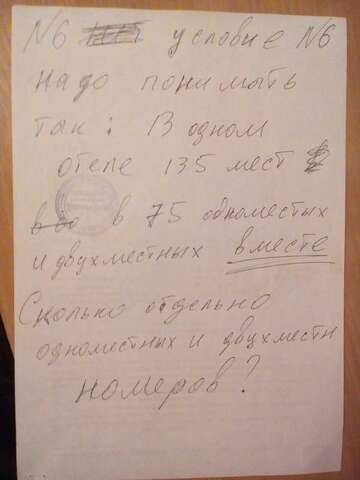 №6 условие №6
надо понимыть
так: В одном
отеле 135 мест
в 75 одноместых
и двухместных вместе
Сколько отдельно
одноместных и двухместн
номеров?